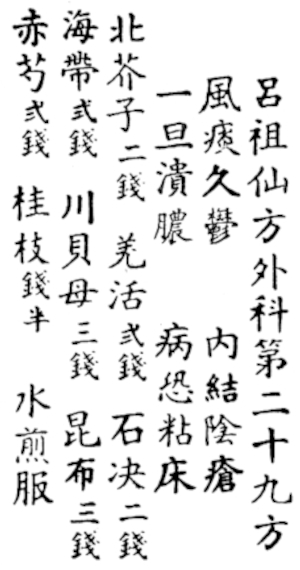 呂祖仙方外科第二十九方
風痰久鬱 內結陰瘡
一旦潰膿 病恐粘床
北芥子二錢 羌活弍錢 石决二錢
海帶弍錢 川貝母三錢 昆布三錢
赤芍弍錢 桂枝錢半 水煎服